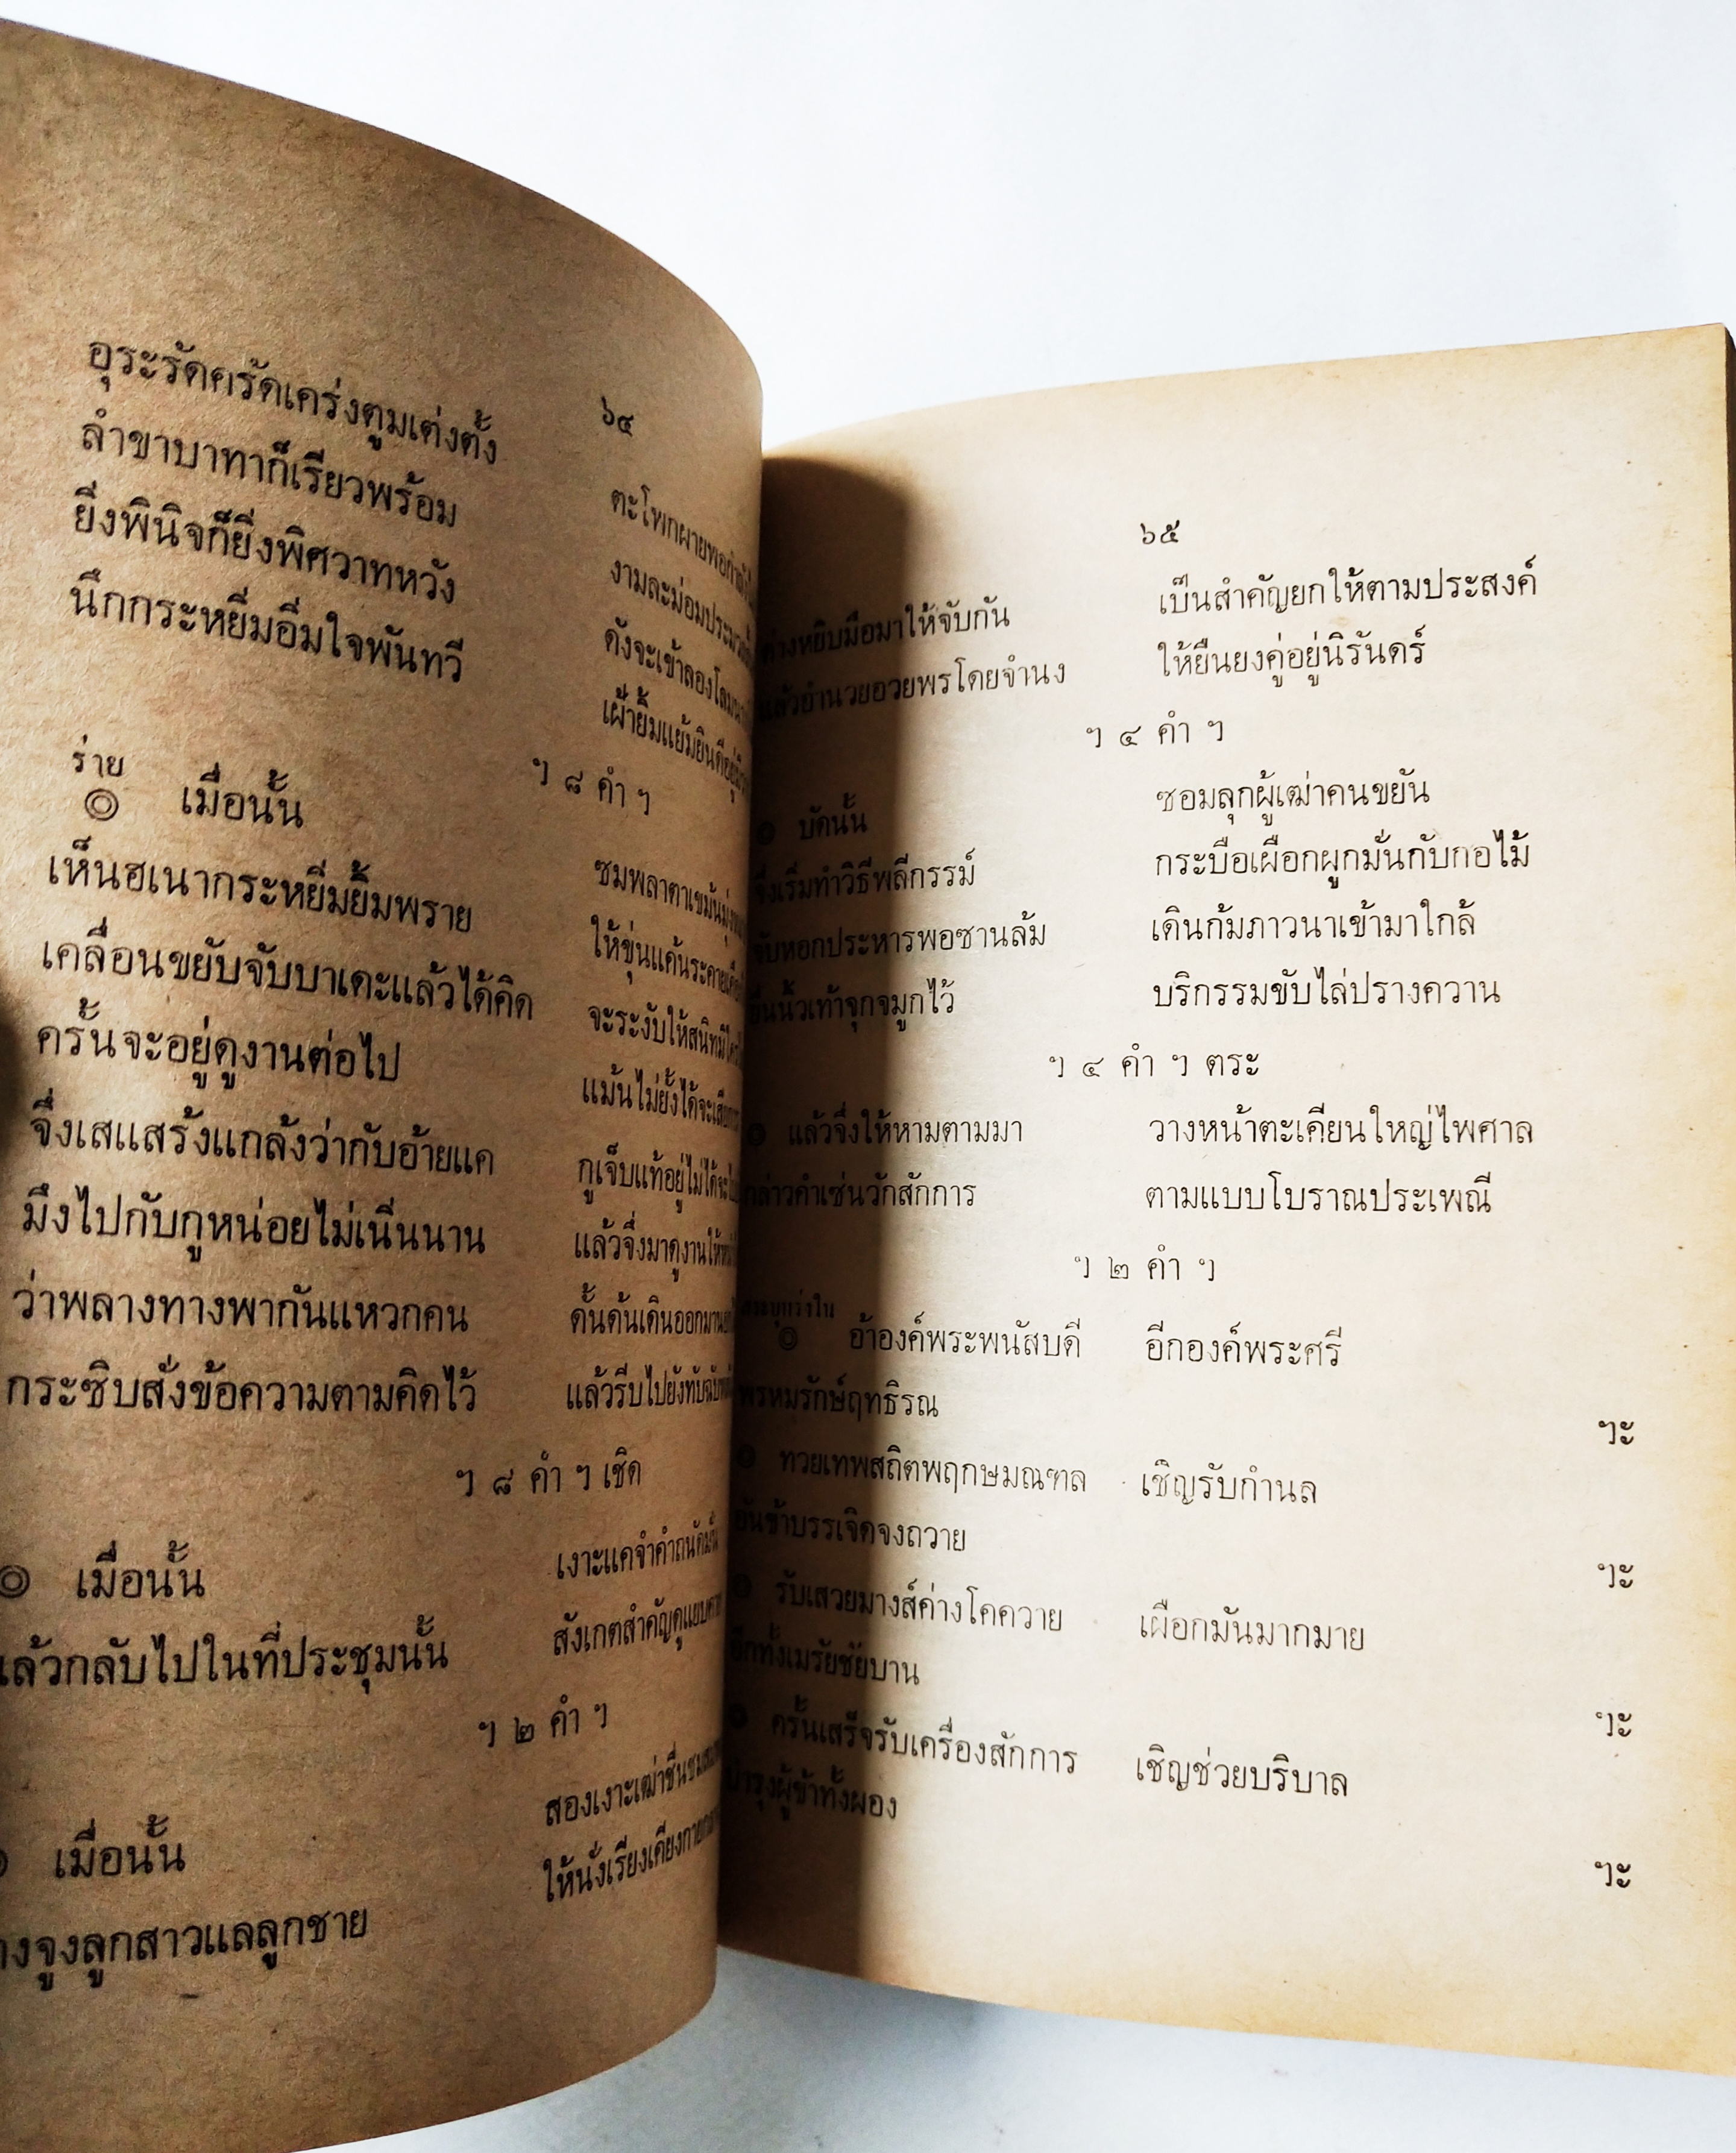 ๖๔
อุระรัดครัดเคร่งตูมเต่งตั้ง ตะโพกผายพอ
ลำขาบาทาก็เรียวพร้อม งามละม่อม
ยิ่งพินิจก็ยิ่งพิศวาทหวัง ดังจะเข้าลองโลม
นึกกระหยิ่มอิ่มใจพันทวี เฝ้ายิ้มแย้มยินดี
ฯ ๘ คำ ฯ
ร่าย
๏ เมื่อนั้น ซมพลาตาเขม้นมุ่ง
เห็นฮเนากระหยิ่มยิ้มพราย ให้ขุ่นแค้นระคาย
เคลื่อนขยับจับบาเดะแล้วได้คิด จะระงับให้สนิท
ครั้นจะอยู่ดูงานต่อไป แม้นไม่ยั้งได้จะ
จึ่งเสแสร้งแกล้งว่ากับอ้ายแค กูเจ็บแท้อยู่ไม่ได้
มึงไปกับกูหน่อยไม่เนิ่นนาน แล้วจึ่งมาดูงานให้
ว่าพลางทางพากันแหวกคน ดั้นด้นเดินออกมา
กระซิบสั่งข้อความตามคิดไว้ แล้วรีบไปยังทับ
ฯ ๘ คำ ฯ เชิด
๏ เมื่อนั้น เงาะแคจำคำถนัด
แล้วกลับไปในที่ประชุมนั้น สังเกตสำคัญดู
ฯ ๒ คำ ฯ
เมื่อนั้น สองเงาะเฒ่าชื่นชม
จูงลูกสาวแลลูกชาย ให้นั่งเรียงเคียงกาย
๖๕
ต่างหยิบมือมาให้จับกัน เป็นสำคัญยกให้ตามประสงค์
แล้วอำนวยอวยพรโดยจำนง ให้ยืนยงคู่อยู่นิรันดร์
ฯ ๔ คำ ฯ
๏ บัดนั้น ซอมลุกผู้เฒ่าคนขยัน
จึ่งเริ่มทำวิธีพลีกรรม์ กระบือเผือกผูกมั่นกับกอไม้
จับหอกประหารพอซานล้ม เดินก้มภาวนาเข้ามาใกล้
ยื่นนิ้วเท้าจุกจมูกไว้ บริกรรมขับไล่ปรางควาน
ฯ ๔ คำ ฯ ตระ
๏ แล้วจึ่งให้หามตามมา วางหน้าตะเคียนใหญ่ไพศาล
กล่าวคำเซ่นวักสักการ ตามแบบโบราณประเพณี
ฯ ๒ คำ ฯ
๏ อ้าองค์พระพนัสบดี อีกองค์พระศรี
พรหมรักษ์ฤทธิรณ ฯะ
๏ ทวยเทพสถิตพฤกษมณฑล เชิญรับกำนล
อันข้าบรรเจิดจงถวาย ฯะ
๏ รับเสวยมางส์ค่างโคควาย เผือกมันมากมาย
อีกทั้งเมรัยชัยบาน ฯะ
๏ ครั้นเสร็จรับเครื่องสักการ เชิญช่วยบริบาล
บำรุงผู้ข้าทั้งผอง ฯะ